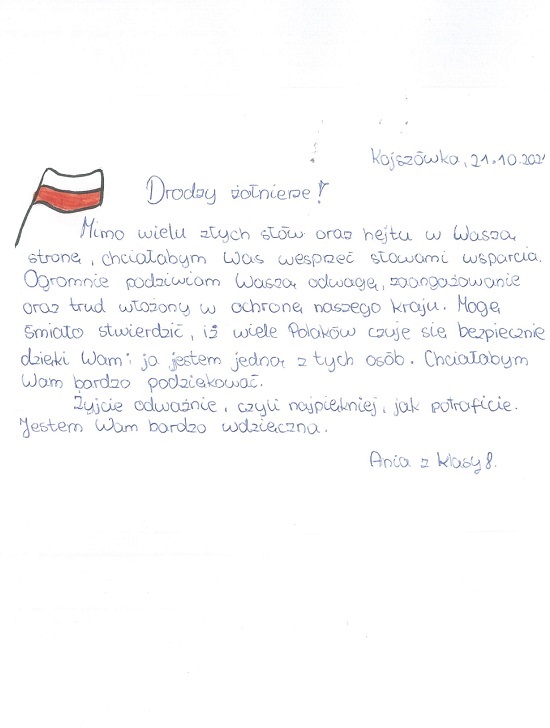 Kojszówka, 21.10.2021
Drodzy żołnierze!
Mimo wielu złych słów oraz hejtu w Waszą
stronę, chciałabym Was wesprzeć słowami wsparcia.
Ogromnie podziwiam Waszą odwagę, zaangażowanie
oraz trud włożony w ochronę naszego kraju. Mogę
śmiało stwierdzić, iż wiele Polaków czuje się bezpiecznie
dzięki Wam i ja jestem jedną z tych osób. Chciałabym
Wam bardzo podziękować.
Żyjcie odważnie, czyli najpiękniej, jak potraficie.
Jestem Wam bardzo wdzięczna.
Ania z klasy 8.